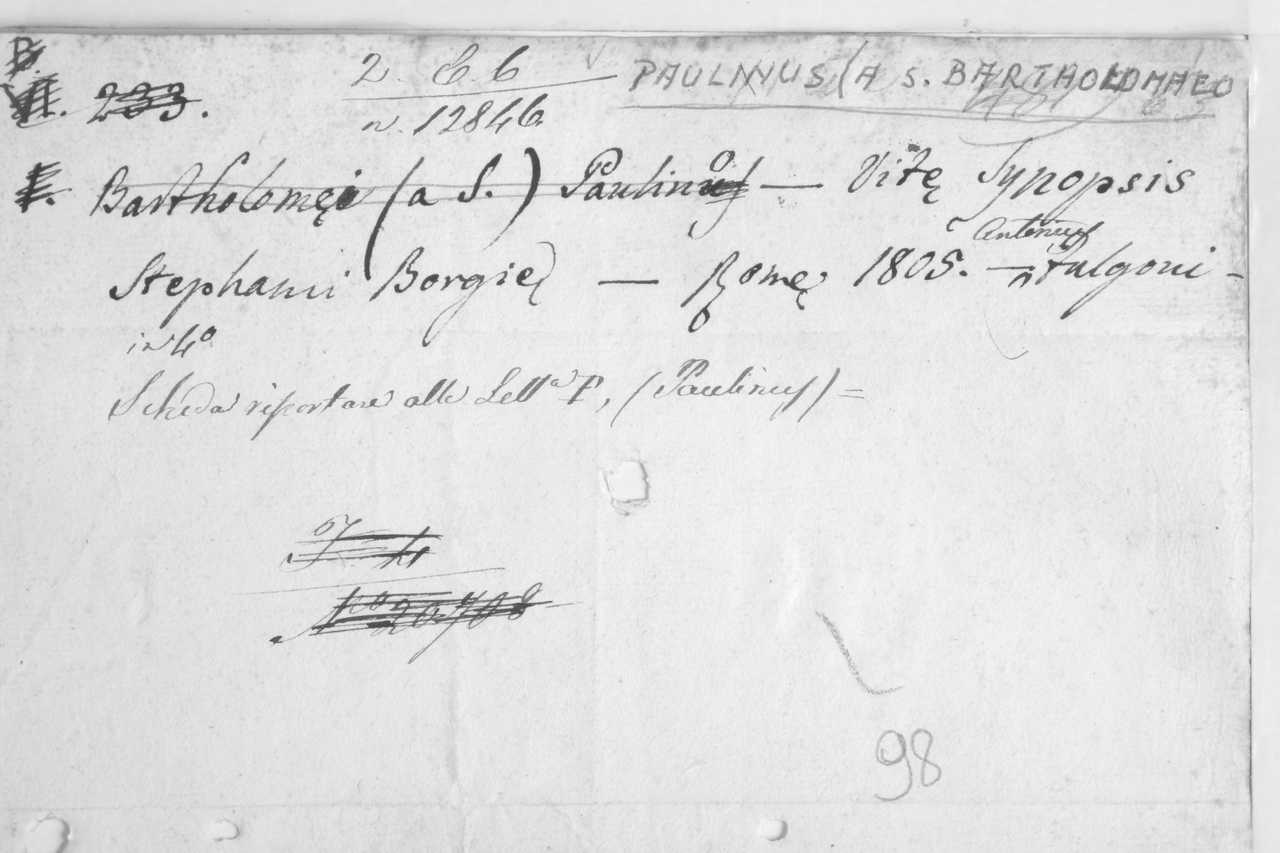 B.
2. E 6 PAULINUS (A S. BARTHOLOMAEO
233.
n. 12846.
Bartholomęi (a S.) Paulinus — Vitę Synopsis
Antonius
Stephani Borgię — Romę 1805. — Fulgoni -
in 4º
Scheda riportare alla Lettª P, (Paulinus) =
F 4
Nº 20708
98